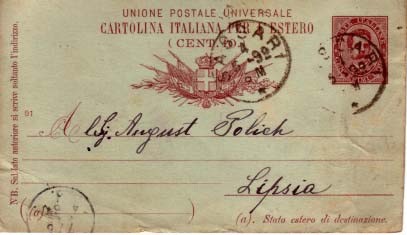 UNIONE POSTALE UNIVERSALE
CARTOLINA ITALIANA PER L'ESTERO
(CENT.
N.B. Sul lato anteriore si scrive soltanto l'indirizzo.
91
Al Sig. August Polich
Lipsia
(a)
(a). Stato estero di destinazione.